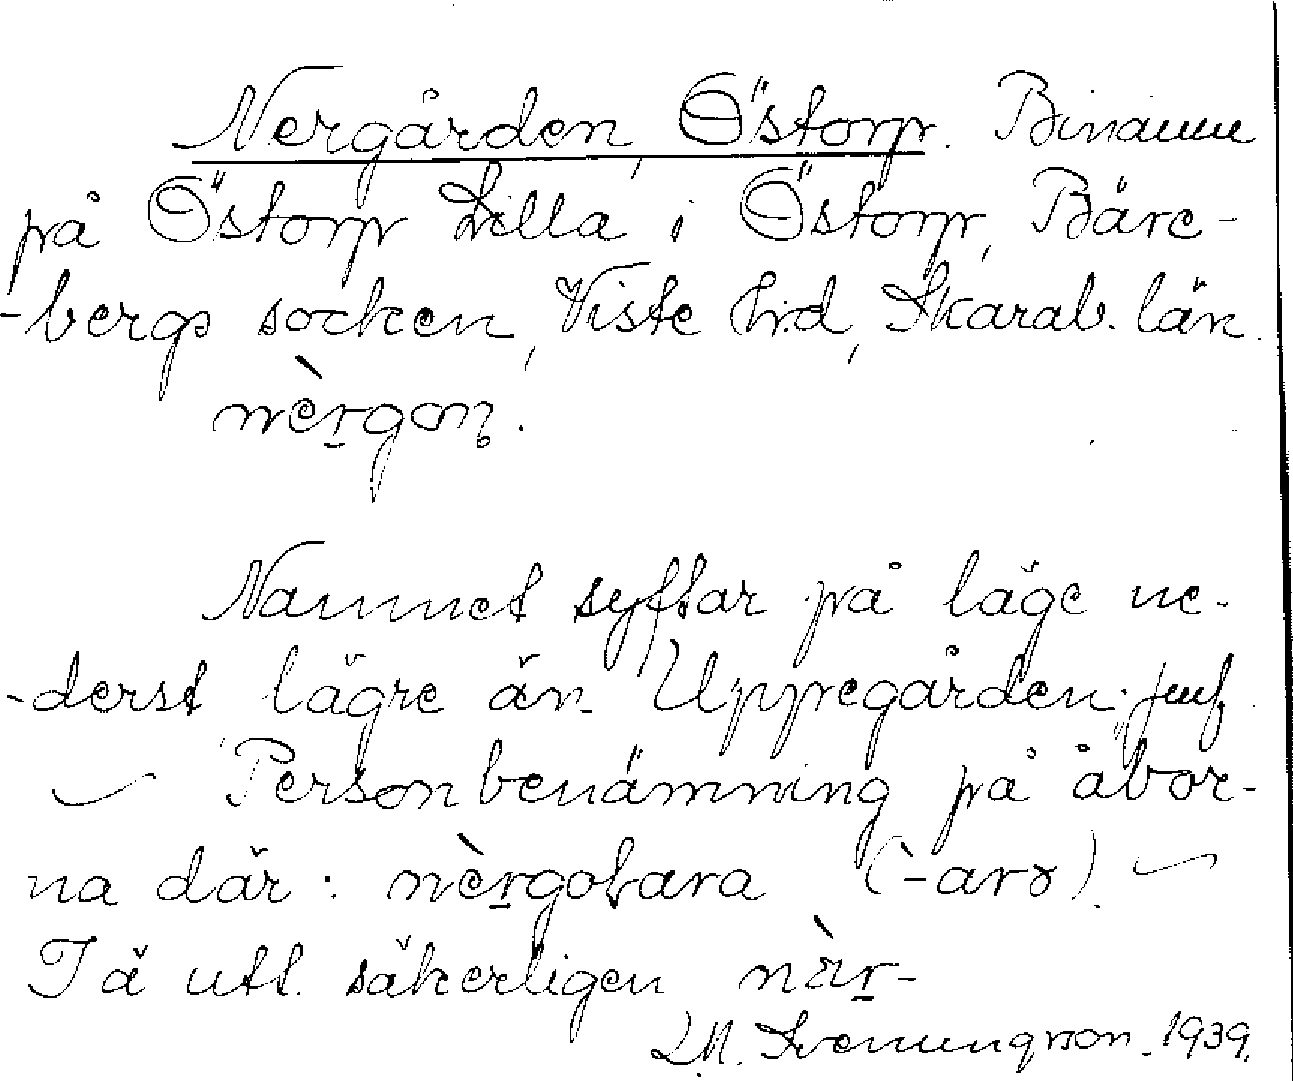 Nergården, Östorp. Binamn
på Östorp Lilla i Östorp, Bäre-
-bergs socken, Viste hrd, Skarab. län.
nèrgon.
Namnet syftar på läge ne-
-derst lägre än Uppegården; jmf.
Personbenämning på åbor-
na där: nèrgobara (-arɤ).
I ä utt. säkerligen nàr-
L.M. Svenungsson. 1939.